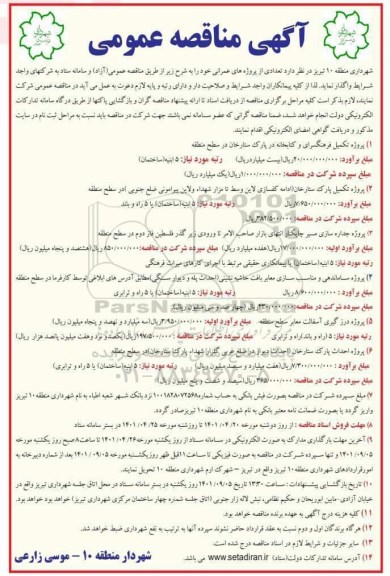 آگهی مناقصه عمومی
شهرداری منطقه ۱۰ تبریز در نظر دارد تعدادی از پروژه های عمرانی خود را به شرح زیر از طریق مناقصه عمومی (آزاد) و سامانه ستاد به شرکتهای واجد
شرایط واگذار نماید. لذا از کلیه پیمانکاران واجد شرایط و صلاحیت دار و دارای رتبه و پایه لازم دعوت به عمل می آید در مناقصه عمومی شرکت
نمایند، لازم بذکر است کلیه مراحل برگزاری مناقصه از دریافت اسناد تا ارائه پیشنهاد مناقصه گران و بازگشایی پاکتها از طریق درگاه سامانه تدارکات
الکترونیکی دولت انجام خواهد شد، ضمنا مناقصه گرانی که عضو سامانه نمی باشند جهت شرکت در مناقصه باید نسبت به مراحل ثبت نام در سایت
مذکور و دریافت گواهی امضای الکترونیکی اقدام نمایند.
۱) پروژه تکمیل فرهنگسرای و کتابخانه در پارک ستارخان در سطح منطقه
مبلغ برآورد: ۲۰/۰۰۰/۰۰۰/۰۰۰ریال(بیست میلیاردریال) رتبه مورد نیاز: ۵ ابنیه(ساختمان)
مبلغ سپرده شرکت در مناقصه: ۱/۰۰۰/۰۰۰/۰۰۰ریال(یک میلیارد ریال)
۲) پروژه تکمیل پارک ستارخان(ادامه کفسازی لاین وسط تا مزار شهداء ولاین پیرامونی ضلع جنوبی )در سطح منطقه
مبلغ برآورد: ۷/۶۵۰/۰۰۰/۰۰۰ریال رتبه مورد نیاز: ۵ ابنیه(ساختمان) یا ۵ راه و باند
مبلغ سپرده شرکت در مناقصه: ۳۸۲/۵۰۰/۰۰۰ریال
۳) پروژه جداره سازی مسیر چایکنار انتهای بازار صاحب الامر تا ورودی زیر گذر فلسطین فاز دوم در سطح منطقه
مبلغ برآورد اولیه: ۱۷/۰۰۰/۰۰۰/۰۰۰ریال(هفده میلیارد ریال) مبلغ سپرده شرکت در مناقصه: ۸۵۰/۰۰۰/۰۰۰ ریال(هشتصد و پنجاه میلیون ریال)
رتبه مورد نیاز: ۵ ابنیه(ساختمان) یا پیمانکاری حقیقی مرتبط با اجرای کارهای میراث فرهنگی
۴) پروژه ساماندهی و مناسب سازی معابر بافت حاشیه نشینی(احداث پله و دیوار سنگی)مطابق آدرس های ابلاغی توسط کارفرما در سطح منطقه
مبلغ برآورد : ۸/۶۰۰/۰۰۰/۰۰۰ریال رتبه مورد نیاز: ۵ ابنیه(ساختمان) یا ۵ راه و ترابری
مبلغ سپرده شرکت در مناقصه: ۴۳۰/۰۰۰/۰۰۰ریال(چهارصد و سی میلیون ریال)
۵) پروژه درز گیری آسفالت معابر سطح منطقه مبلغ برآورد اولیه: ۳/۹۵۰/۰۰۰/۰۰۰ریال(سه میلیارد و نهصد و پنجاه میلیون ریال)
رتبه مورد نیاز: ۵ راه و باند،راه و ترابری مبلغ سپرده شرکت در مناقصه: ۱۹۷/۵۰۰/۰۰۰ریال(یکصد و نود وهفت میلیون پانصد هزار ریال)
۶) پروژه احداث پارک ستارخان (احداث دیوار مرز ضلع غربی گلزار شهداء پارک ستارخان)در سطح منطقه
مبلغ برآورد: ۷/۳۰۰/۰۰۰/۰۰۰ریال(هفت میلیارد و سیصد میلیون ریال) رتبه مورد نیاز: ۵ ابنیه(ساختمان) یا ۵ راه و ترابری)
مبلغ سپرده شرکت در مناقصه: ۳۶۵/۰۰۰/۰۰۰ریال(سیصد و شصت و پنج میلیون ریال)
۷) مبلغ سپرده شرکت در مناقصه بصورت فیش بانکی به حساب شماره نزد بانک شهر شعبه اطباء به نام شهرداری منطقه ۱۰ تبریز
واریز گردد یا بصورت ضمانت نامه معتبر بانکی به نام شهرداری منطقه ۱۰ تبریزصادر گردد.
۸) مهلت فروش اسناد مناقصه : از روز دوشنبه مورخه ۱۴۰۱/۰۴/۲۰ تا روزشنبه مورخه ۱۴۰۱/۰۴/۲۵ در بستر سامانه ستاد
۹) آخرین مهلت بارگذاری مدارک به صورت الکترونیکی در سامانه ستاد از روز یکشنبه مورخه ۱۴۰۱/۰۴/۲۶ تا ساعت۸صبح روز یکشنبه مورخه
۱۴۰۱/۰۵/۰۹ و تنها سپرده شرکت در مناقصه به صورت فیزیکی تا ساعت۱۱قبل ظهر روزیکشنبه مورخه ۱۴۰۱/۰۵/۰۹ بعد از شماره دبیرخانه به
امورقراردادهای شهرداری منطقه ۱۰ تبریز واقع در تبریز – شهرک ارم شهرداری منطقه ۱۰ تحویل نمایند.
۱۰) تاریخ بازگشایی پیشنهادات : ساعت ۱۳:۳۰ تاریخ ۱۴۰۱/۰۵/۰۹ روز یکشنبه در بستر سامانه ستاد در محل اتاق جلسه شهرداری تبریز واقع در
خیابان آزادی-مابین ابوریحان و حکیم نظامی، نبش لاله زار جنوبی (اتاق جلسه شماره چهار ساختمان مرکزی شهرداری تبریز) خواهد بود.
۱۱) کلیه هزینه درج آگهی به عهده برنده مناقصه خواهد بود.
۱۲) هرگاه برندگان اول و دوم نسبت به عقد قرارداد حاضر نشوند سپرده آنها به ترتیب به نفع شهرداری ضبط خواهد شد.
۱۳) سایر جزئیات و شرایط لازم در اسناد مناقصه درج شده است.
۱۴) آدرس سامانه تدارکات دولت(ستاد) www.setadiran.ir می باشد.
شهردار منطقه ۱۰ - موسی زارعی